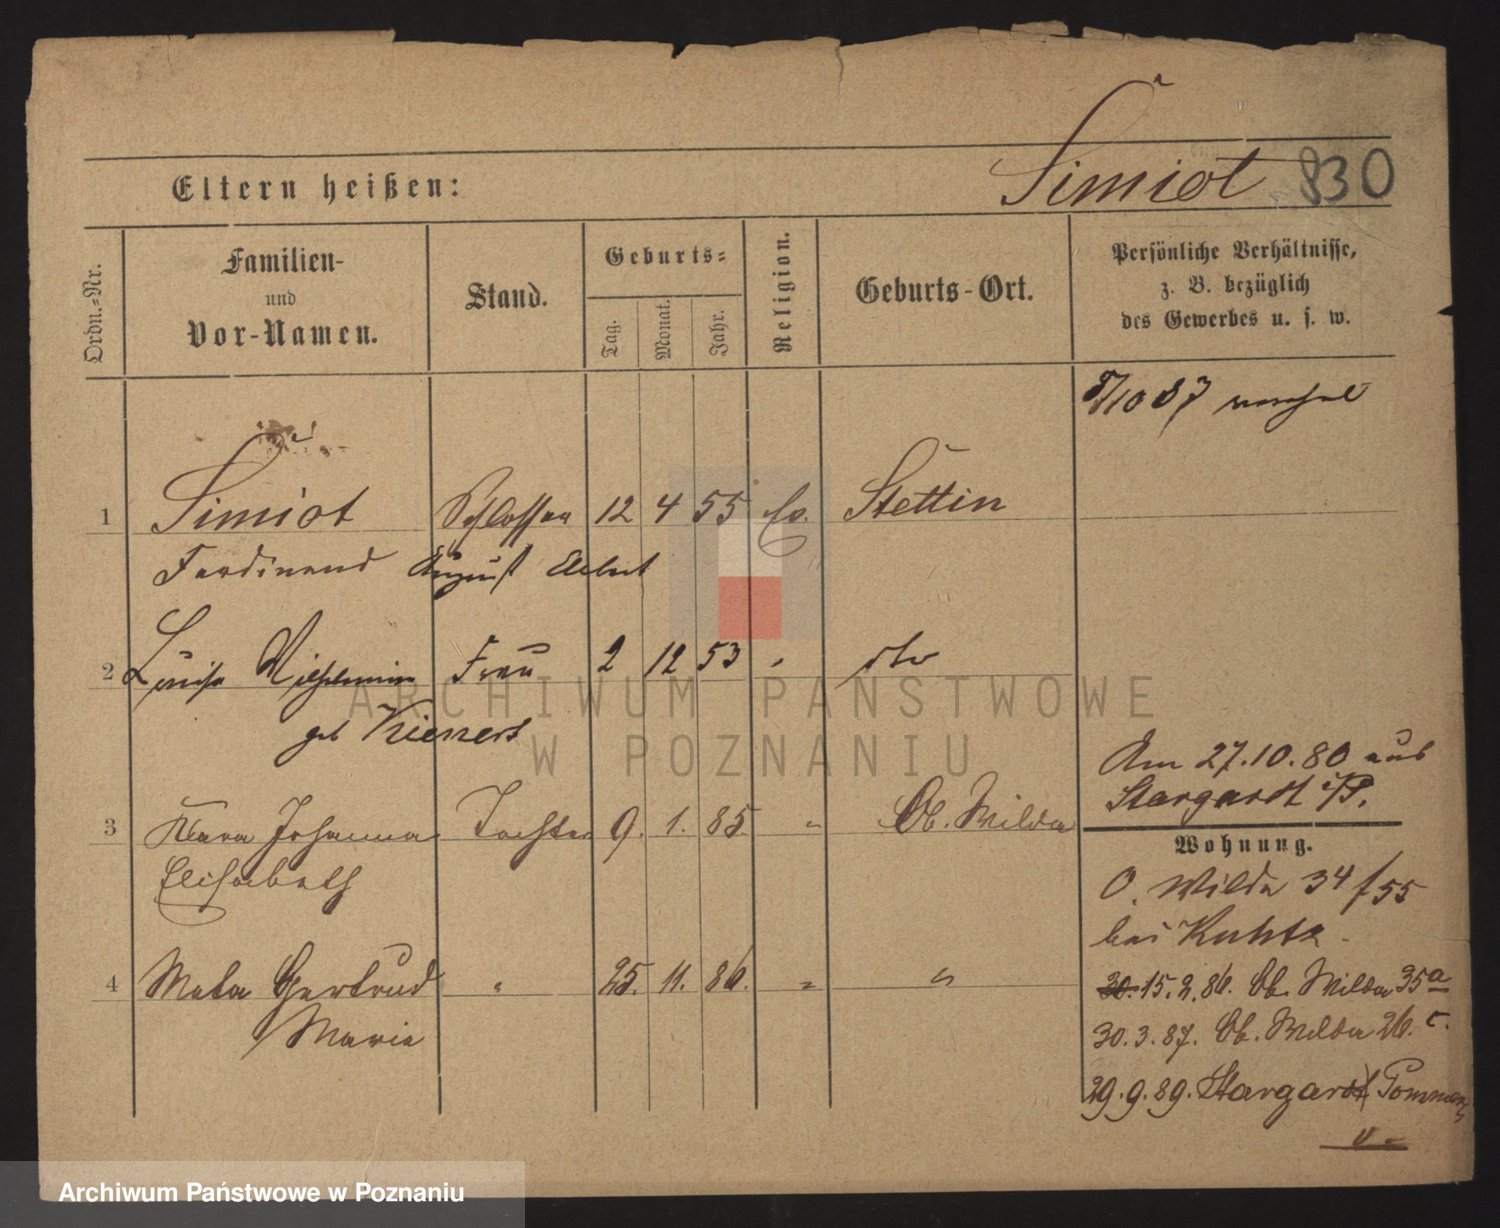 Simiot 830
Eltern heißen:
Ordn.=Nr.
Familien-
und
Vor-Namen.
Stand.
Geburts=
Tag.
Monat.
Jahr.
Religion.
Geburts-Ort.
Persönliche Verhältnisse,
z. B. bezüglich
des Gewerbes u. s. w.
1 Simiot Schlosser 12 4 55 Ev. Stettin
Ferdinand August Albert
2 Luise Wilhelmine Frau 2 12 53 dto
geb Kienert
3 Klara Johanna Tochter 9. 1. 85. " Ob. Wilda
Elisabeth
4 Meta Gertrud " 25. 11. 86. " "
Marie
5/10 87
Am 27.10.80 aus
Stargardt i/P.
Wohnung.
O. Wilda 34/55
bei Kuhtz
30. 15.2.86. Ob. Wilda 35a
30.3.87. Ob. Wilda 26.c.
29.9.89. Stargard Pommern
ARCHIWUM PAŃSTWOWE
W POZNANIU
Archiwum Państwowe w Poznaniu